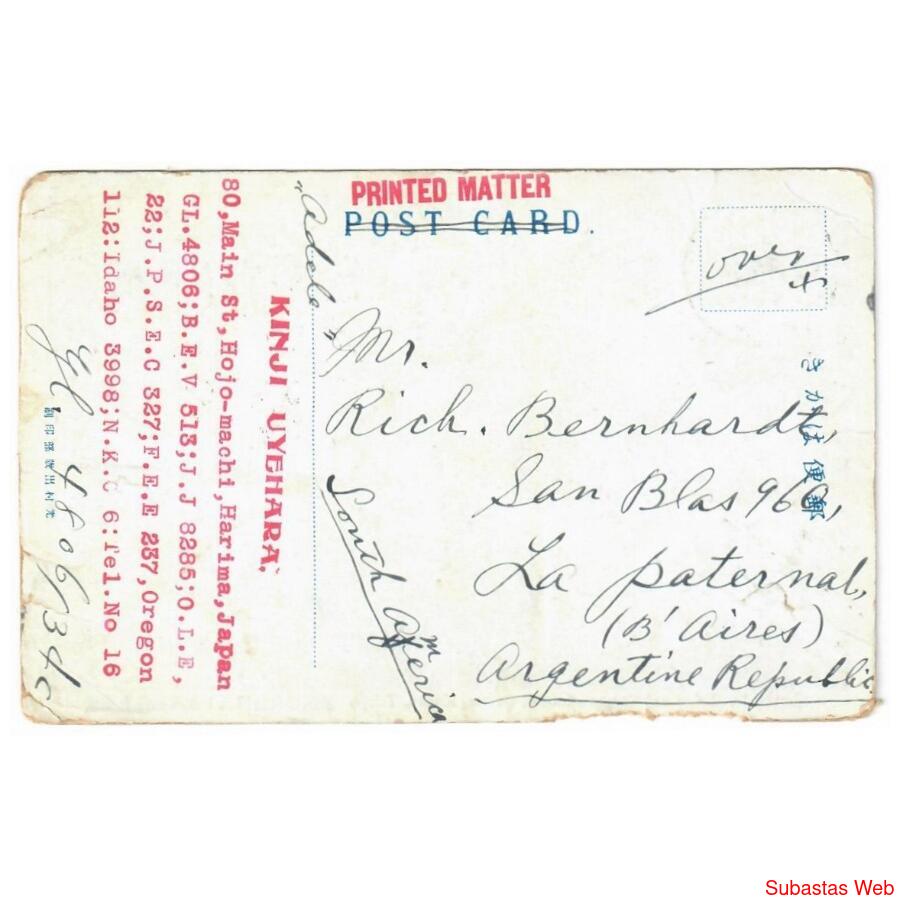 PRINTED MATTER
POST CARD.
over
"Adele"
Mr.
Rich. Bernhardt,
San Blas 960,
La paternal,
(B' Aires)
Argentine Republic
South America
きがは便郵
KINJI UYEHARA.
80,Main St,Hojo-machi,Harima,Japan
GL.4806;B.E.V 513;J.J 8285;O.L.E,
22;J.P.S.E.C 327;F.E.E 237,Oregon
112:Idaho 3998;N.K.C 6:Tel.No 16
4806/34c
Subastas Web